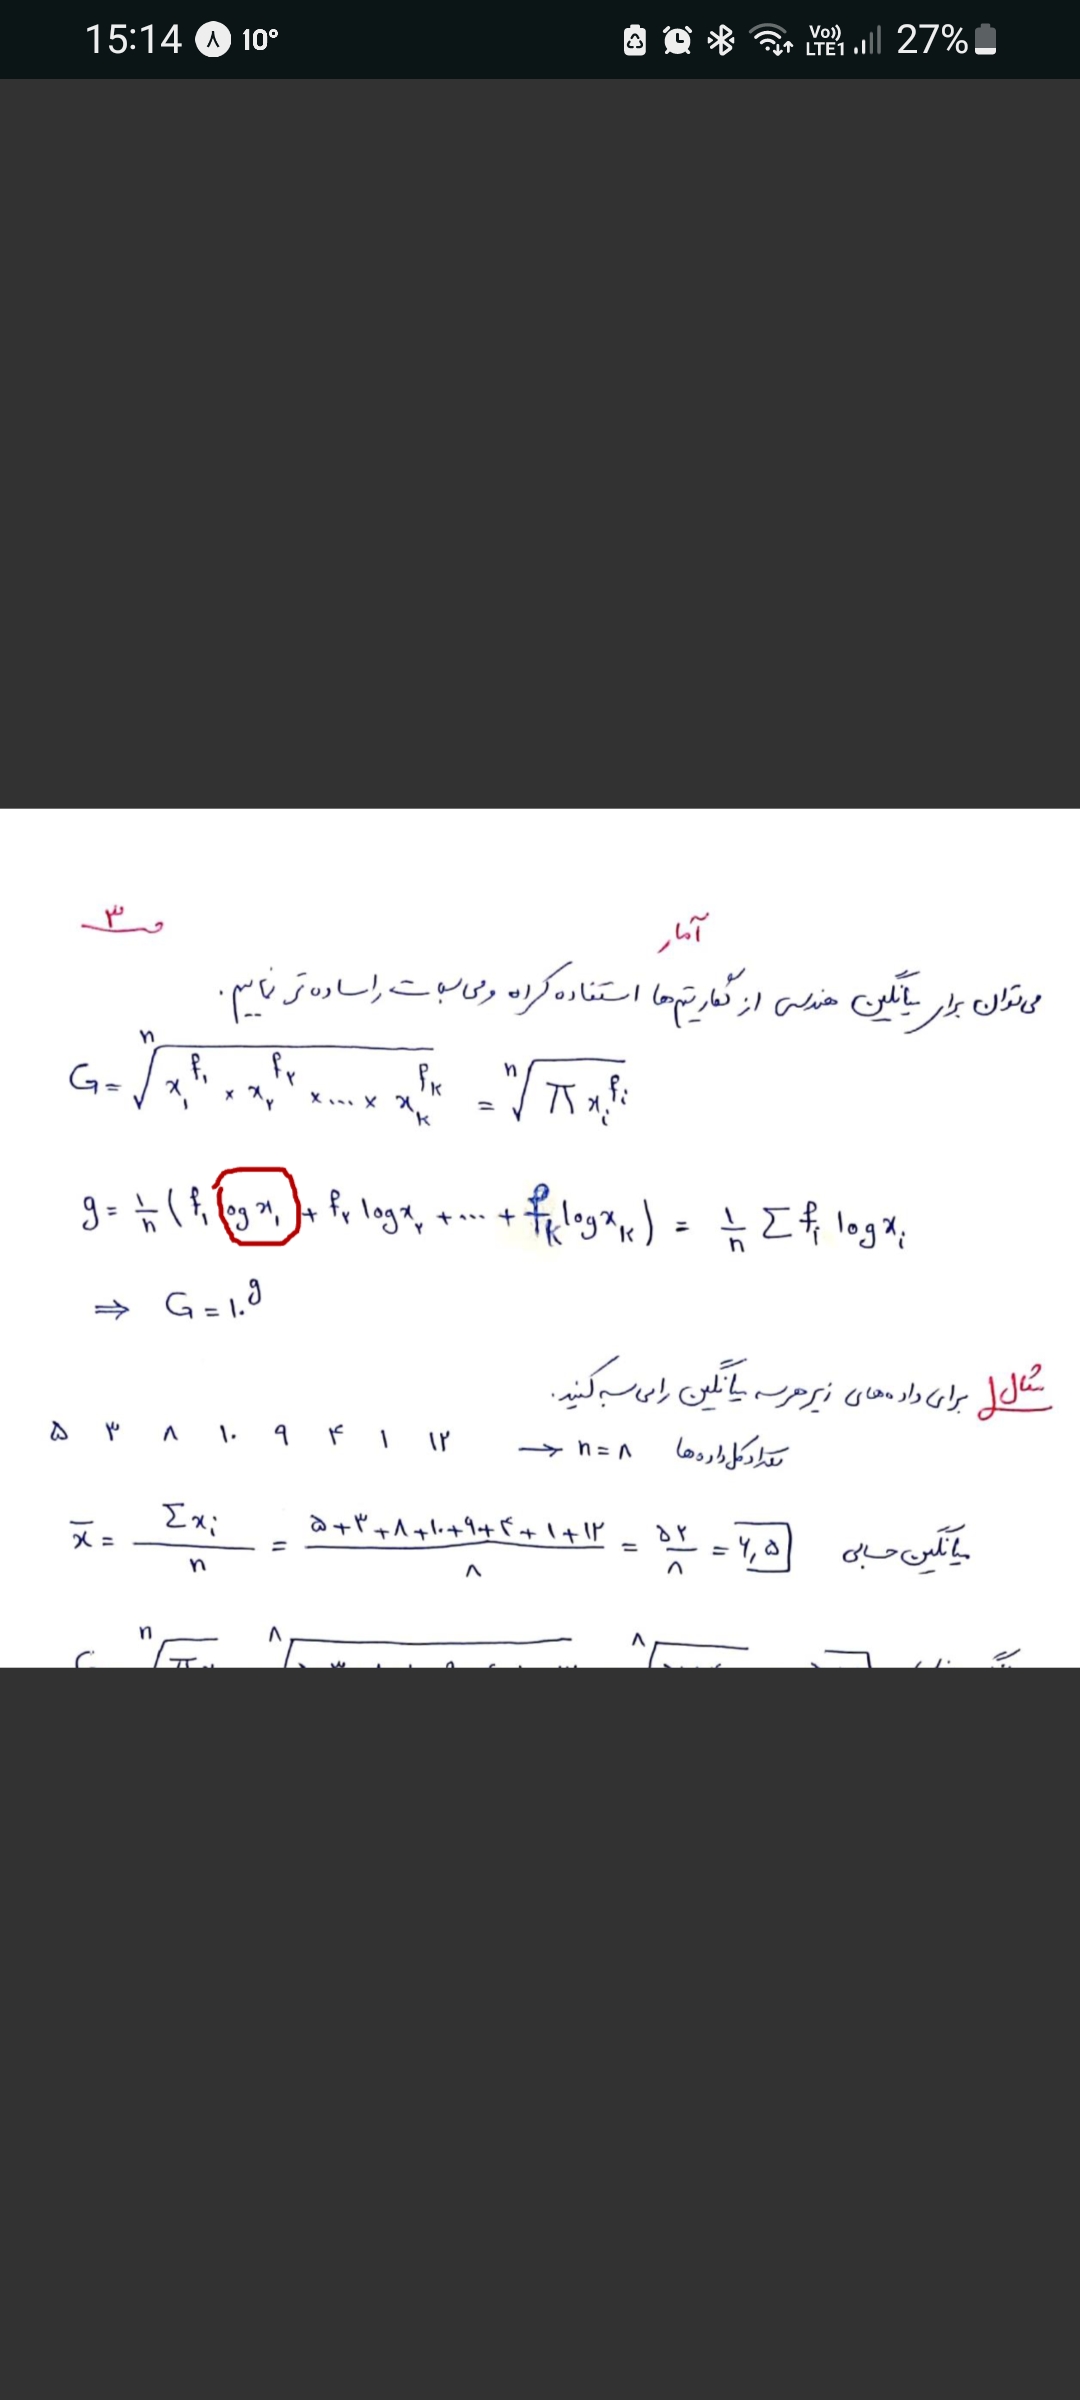 15:14 10° Vo)) LTE1 27%
آمار
ص ۳
می‌توان برای میانگین هندسی از لگاریتم‌ها استفاده کرده و محاسبات را ساده‌تر نماییم.
G = ⁿ√(x₁^f₁ × x₂^f₂ × ... × x_k^f_k) = ⁿ√(π xᵢ^fᵢ)
g = ۱/n (f₁ log x₁ + f₂ log x₂ + ... + f_k log x_k) = ۱/n Σ fᵢ log xᵢ
⇒ G = ۱۰^g
مثال ۱ برای داده‌های زیر هر سه میانگین را محاسبه کنید.
۵ ۳ ۸ ۱۰ ۹ ۴ ۱ ۱۲ → n = ۸ تعداد کل داده‌ها
x̄ = Σxᵢ / n = ۵+۳+۸+۱۰+۹+۴+۱+۱۲ / ۸ = ۵۲ / ۸ = ۶,۵ میانگین حسابی